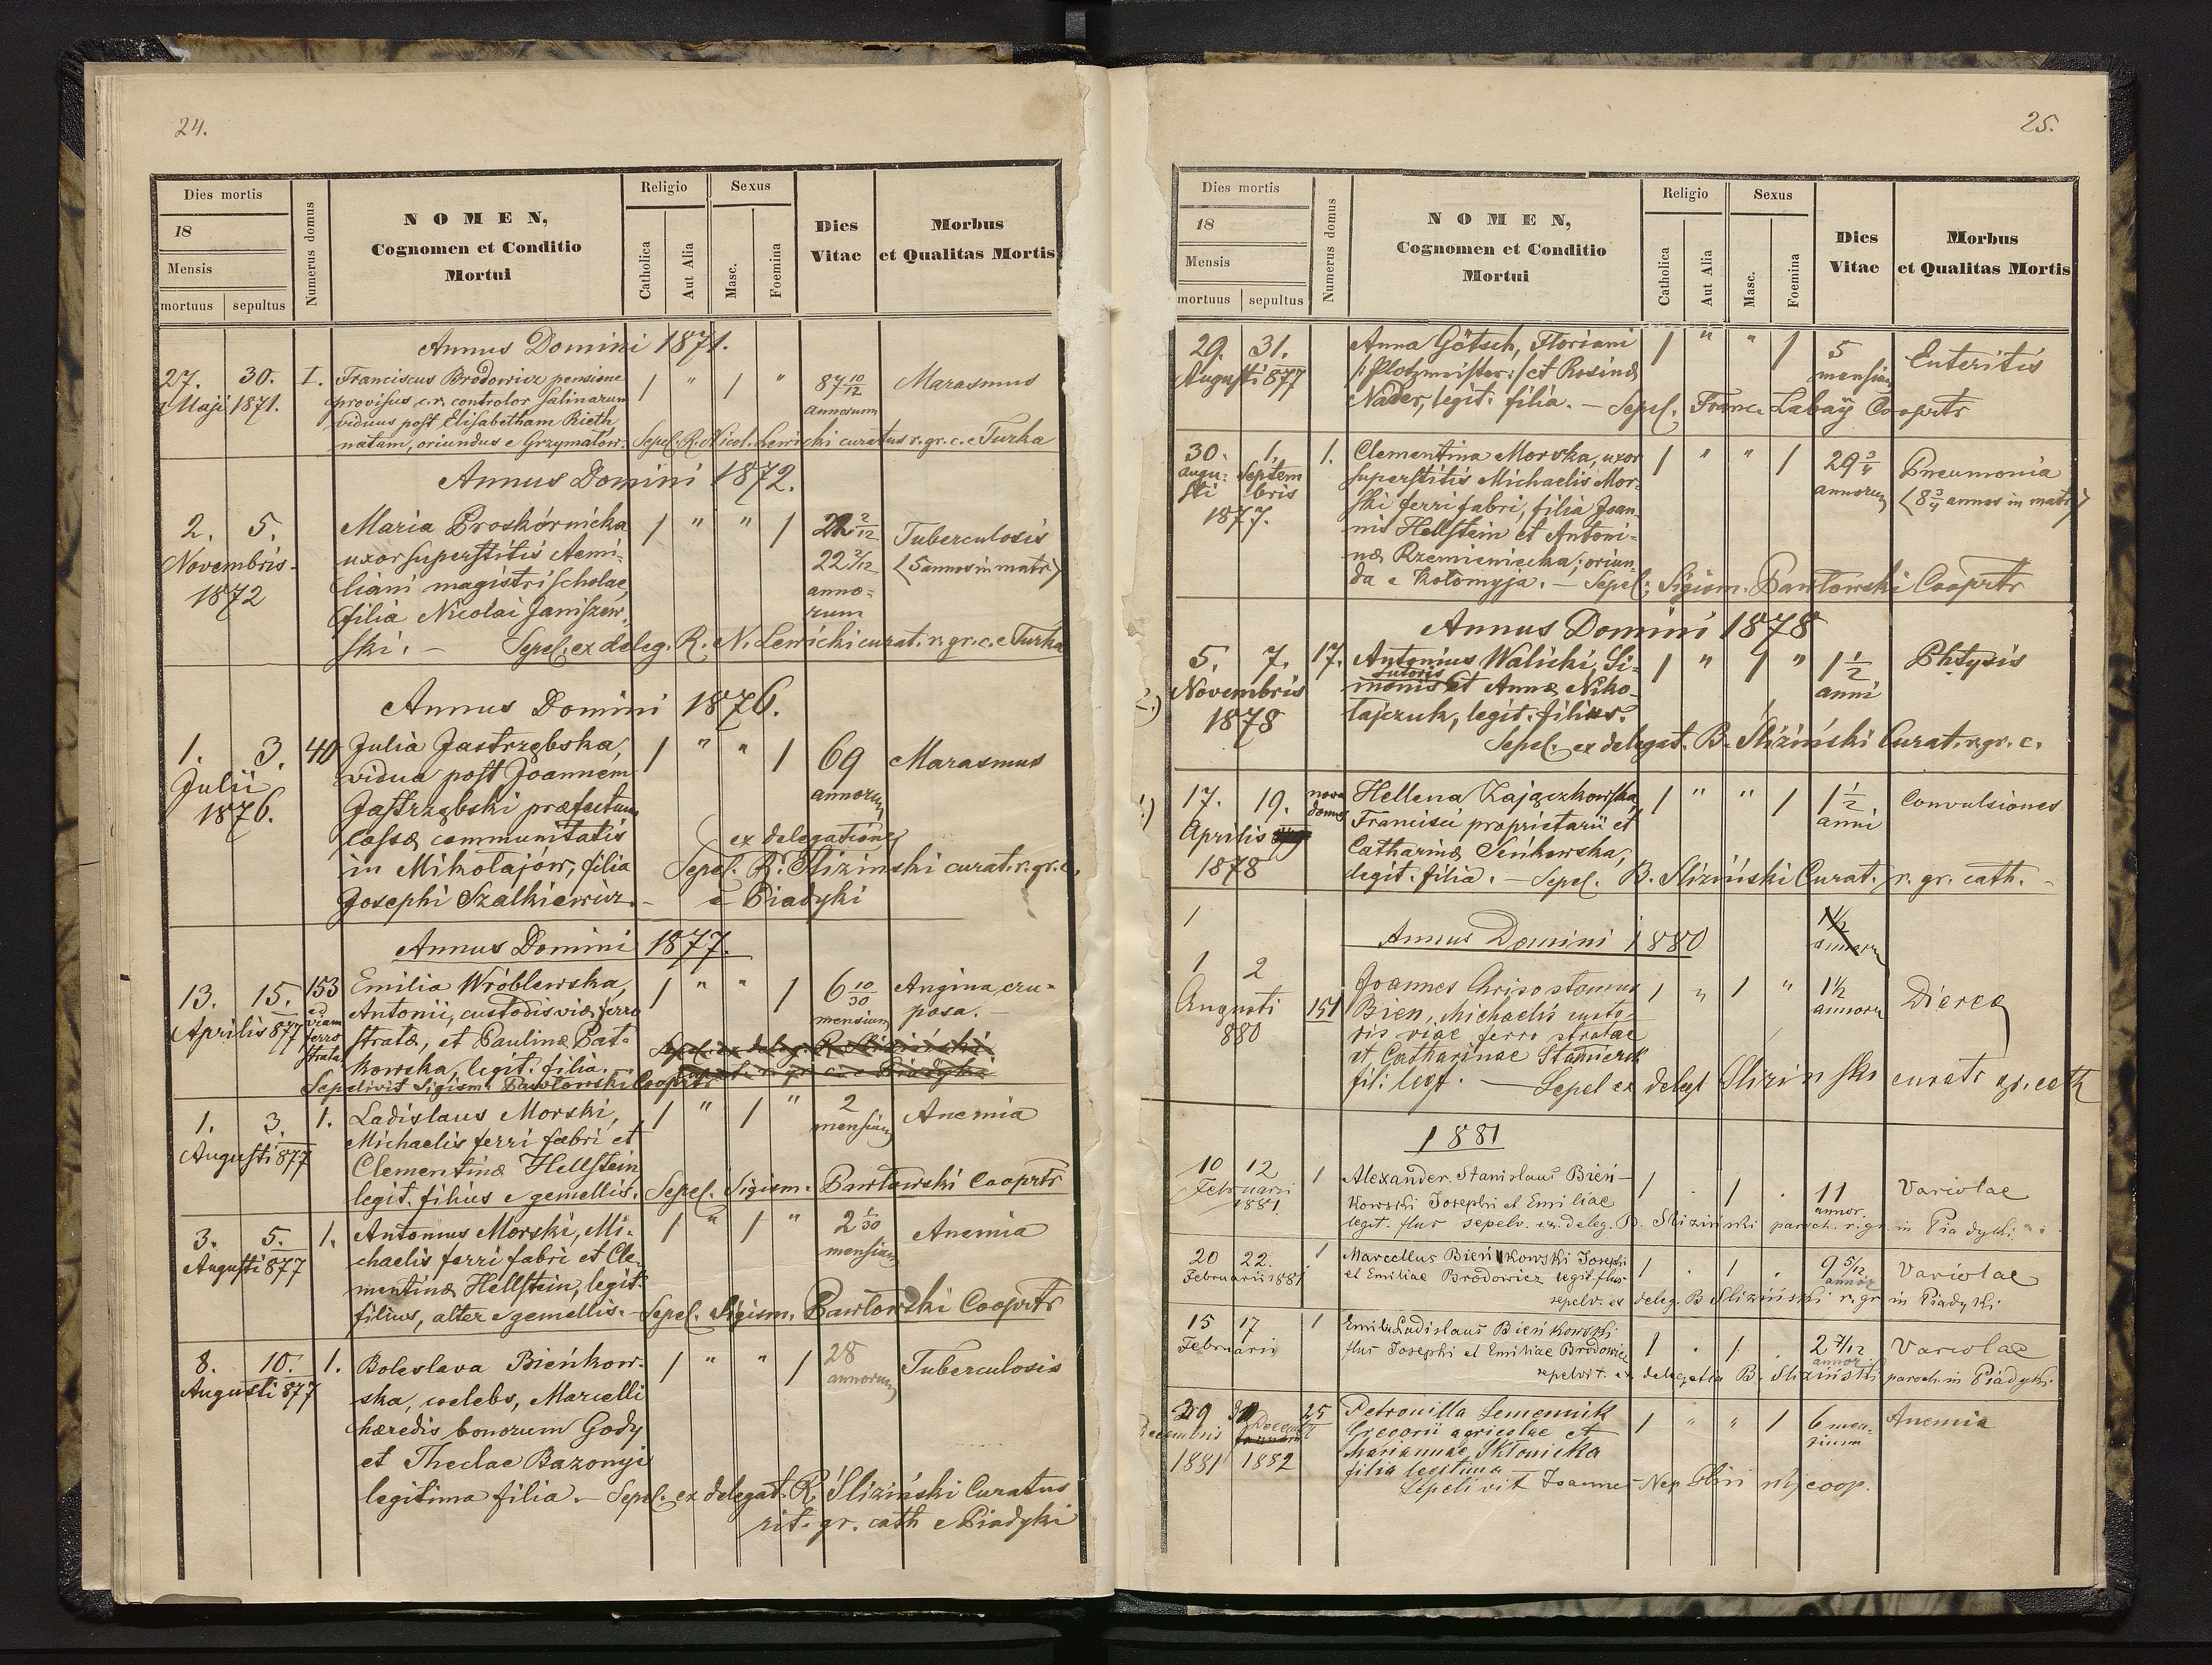 24.
Dies mortis
18
Mensis
mortuus sepultus
Numerus domus
NOMEN,
Cognomen et Conditio
Mortui
Religio
Catholica
Aut Alia
Sexus
Masc.
Foemina
Dies
Vitae
Morbus
et Qualitas Mortis
Annus Domini 1871.
27. 30. I. Franciscus Brodowicz pensione / " / " 87 10/12 Marasmus
Maji 1871. provisus c.r. controlor salinarum annorum
viduus post Elisabetham Rieth
natam, oriundus e Grzymałów. Sepel. R. Nicol. Lewicki curatus r. gr. c. e Turka
Annus Domini 1872.
2. 5. Maria Proskórnicka / " " / 22 2/12 Tuberculosis
Novembris uxor superstitis Aemi- 22 2/12 (5 annos in matr)
1872 liani magistri scholae, anno-
filia Nicolai Janiszew- rum
ski. - Sepel. ex deleg. R. N. Lewicki curat. r. gr. c. e Turka
Annus Domini 1876.
1. 3. 40 Julia Jastrzębska, / " " / 69 Marasmus
Julii vidua post Joannem annorum
1876. Jastrzębski praefectum
cassae communitatis ex delegatione
in Mikołajów, filia Sepel. R. Slizinski curat. r. gr. c.
Josephi Szalkiewicz. - e Piadyki
Annus Domini 1877.
13. 15. 153 Emilia Wróblewska, / " " / 6 10/30 Angina cru-
Aprilis 877 ad viam ferro strata Antonii, custodis viae ferro mensium posa. -
stratae, et Paulinae Pat-
kowska, legit. filia. Sepel. ex deleg. R. Sliziński
Curat. r. gr. c. e Piadyki
Sepelivit Sigism. Pawłowski Cooprtr
1. 3. 1. Ladislaus Morski, / " / " 2 Anemia
Augusti 877 Michaelis ferri fabri et mensium
Clementinae Hellstein
legit. filius e gemellis. Sepel. Sigism. Pawłowski Cooprtr
3. 5. 1. Antonius Morski, Mi- / " / " 2 1/30 Anemia
Augusti 877 chaelis ferri fabri et Cle- mensium
mentinae Hellstein, legit.
filius, alter e gemellis. - Sepel. Sigism. Pawłowski Cooprtr
8. 10. 1. Boleslava Bieńkow- / " " / 28 Tuberculosis
Augusti 877 ska, coelebs, Marcelli annorum
haeredis bonorum Gody
et Theclae Bazonyi
legitima filia. - Sepel. ex delegat. R. Sliziński Curatus
rit. gr. cath e Piadyki
25.
Dies mortis
18
Mensis
mortuus sepultus
Numerus domus
NOMEN,
Cognomen et Conditio
Mortui
Religio
Catholica
Aut Alia
Sexus
Masc.
Foemina
Dies
Vitae
Morbus
et Qualitas Mortis
29. 31. Anna Götsch, Floriani / " " / 5 Enteritis
Augusti 877 /:Plotzmeister:/ et Rosinae mensium
Nader, legit. filia. - Sepel. Franc. Labaÿ Cooprtr
30. 1. 1. Clementina Morska, uxor / " " / 29 3/4 Pneumonia
augusti Septembris superstitis Michaelis Mor- annorum (8 3/4 annos in matr)
1877. ski ferri fabri, filia Joan-
nis Hellstein et Antoni-
nae Rzemieniecka; oriun-
da e Kołomyja. - Sepel. Sigism. Pawłowski Cooprtr
Annus Domini 1878
5. 7. 17. Antonius Waliski, Si- / " / " 1 1/2 Phtysis
Novembris monis sutoris et Annae Niko- anni
1878 łajczuk, legit. filius.
Sepel. ex delegat. B. Sliziński Curat. r. gr. c.
17. 19. nova domus Hellena Zajączkowska, / " " / 1 1/2 Convulsiones
Aprilis Francisci proprietarii et anni
1878 Catharinae Seńkowska,
legit. filia. - Sepel. B. Sliziński Curat. r. gr. cath. -
1 1 1/2
annorum
Annus Domini 1880
1 2 Joannes Chrisostomus 1 " 1 " 1 1/2 Dierea
Augusti 151 Bien, Michaelis custo- annorum
880 dis viae ferro stratae
et Catharinae Stamierk
fil: legt. - Sepel ex delegt Slizinski curatr gr. cath
1881
10 12 1 Alexander Stanislaus Bień- 1 . 1 . 11 Variolae
Februarii kowski Josephi et Emiliae annor.
1881 legit. flus sepelv. ex. deleg. B. Sliziński paroch. r. gr. in Piadyki.
20 22 1 Marcellus Bieńkowski Josephi 1 . 1 . 9 5/12 Variolae
Februarii 1881 et Emiliae Brodowicz legit. flus annor
sepelv. ex deleg. B Sliziński r. gr in Piadyki
15 17 1 Emil Ladislaus Bieńkowski 1 . 1 . 2 7/12 Variolae
Februarii flus Josephi et Emiliae Brodowicz annor
sepelvit. ex delegatia B. Sliziński paroch. in Piadyki
29 25 Petronilla Semenuik 1 " " 1 6 men- Anemia
Decembris Gregorii agricolae et sium
1881 1882 Mariannae Skłonicka
filia legitima
Sepelivit Joannes Nep. coop.